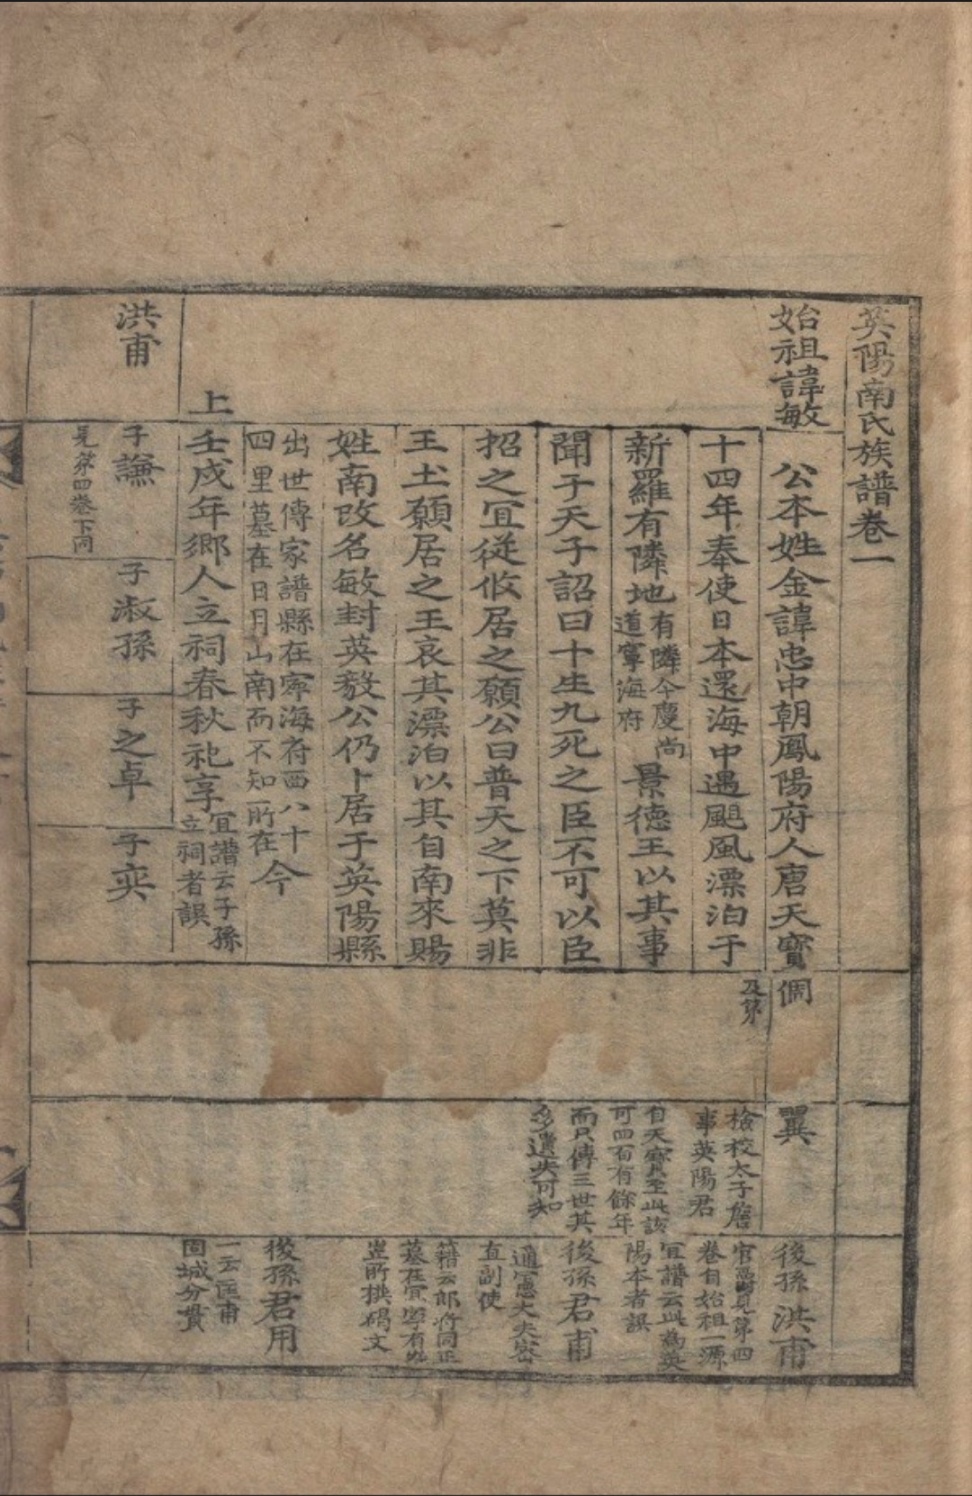 英陽南氏族譜卷一
始祖諱敏
公本姓金諱忠中朝鳳陽府人唐天寶
十四年奉使日本還海中遇颶風漂泊于
新羅有隣地有隣今慶尚道寧海府景德王以其事
聞于天子天子詔曰十生九死之臣不可以臣
招之宜從攸居之願公曰普天之下莫非
王土願居之王哀其漂泊以其自南來賜
姓南改名敏封英毅公仍卜居于英陽縣
出世傳家譜縣在寧海府西八十
四里墓在日月山南而不知所在今
上
壬戌年鄉人立祠春秋祀享宜譜云子孫立祠者誤
倜
及第
翼
檢校太子詹
事英陽君
自天寶至此該
可四百有餘年
而只傳三世其
多遺失可知
後孫洪甫
官爵見第四
卷自始祖一源
宜譜云此爲英
陽本者誤
後孫君甫
通憲大夫密
直副使
籍云郎將同正
墓在宜寧有
豈所撰碣文
後孫君用
一云匡甫
固城分貫
洪甫
子謙
見第四卷下同
子淑孫
子之卓
子奕